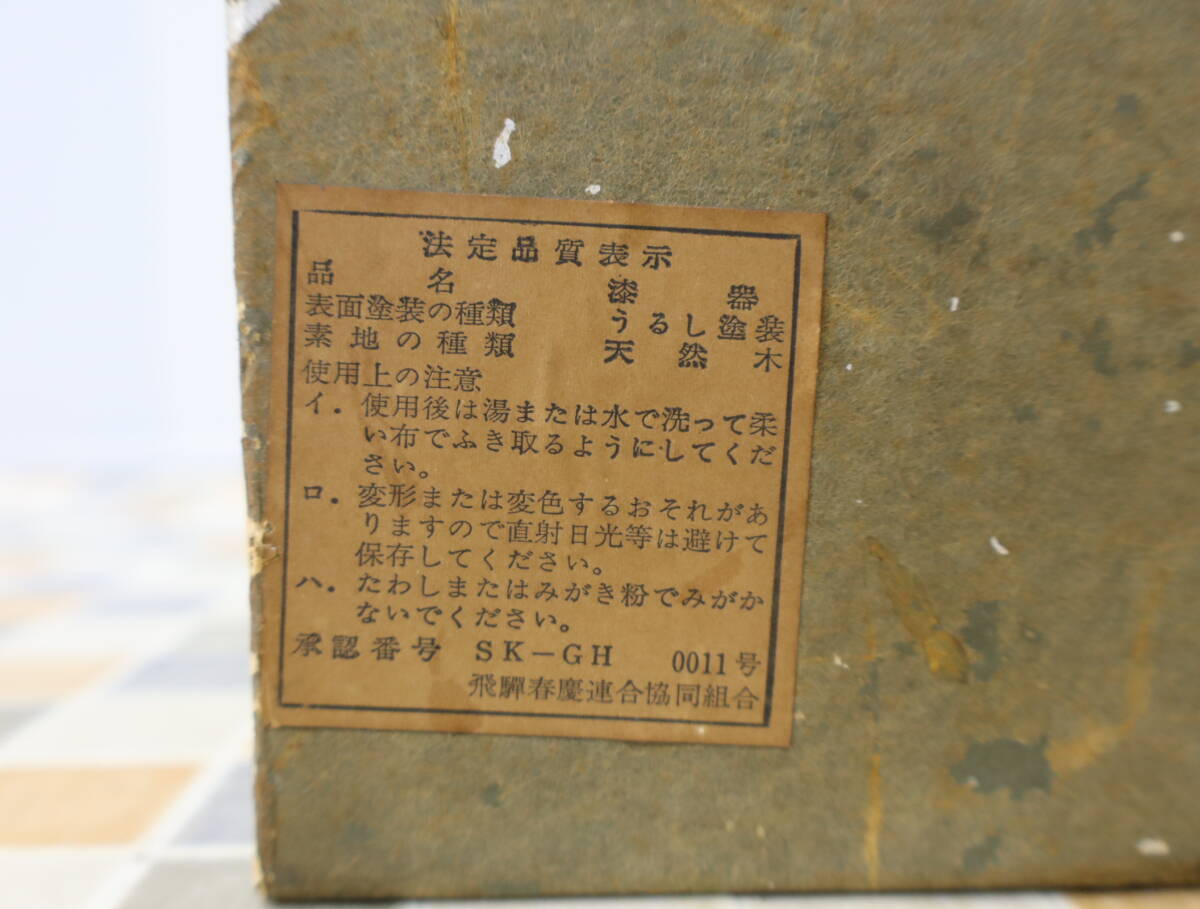 法定品質表示
品名 漆器
表面塗装の種類 うるし塗装
素地の種類 天然木
使用上の注意
イ. 使用後は湯または水で洗って柔
い布でふき取るようにしてくだ
さい。
ロ. 変形または変色するおそれがあ
りますので直射日光等は避けて
保存してください。
ハ. たわしまたはみがき粉でみがか
ないでください。
承認番号 SK-GH 0011号
飛騨春慶連合協同組合